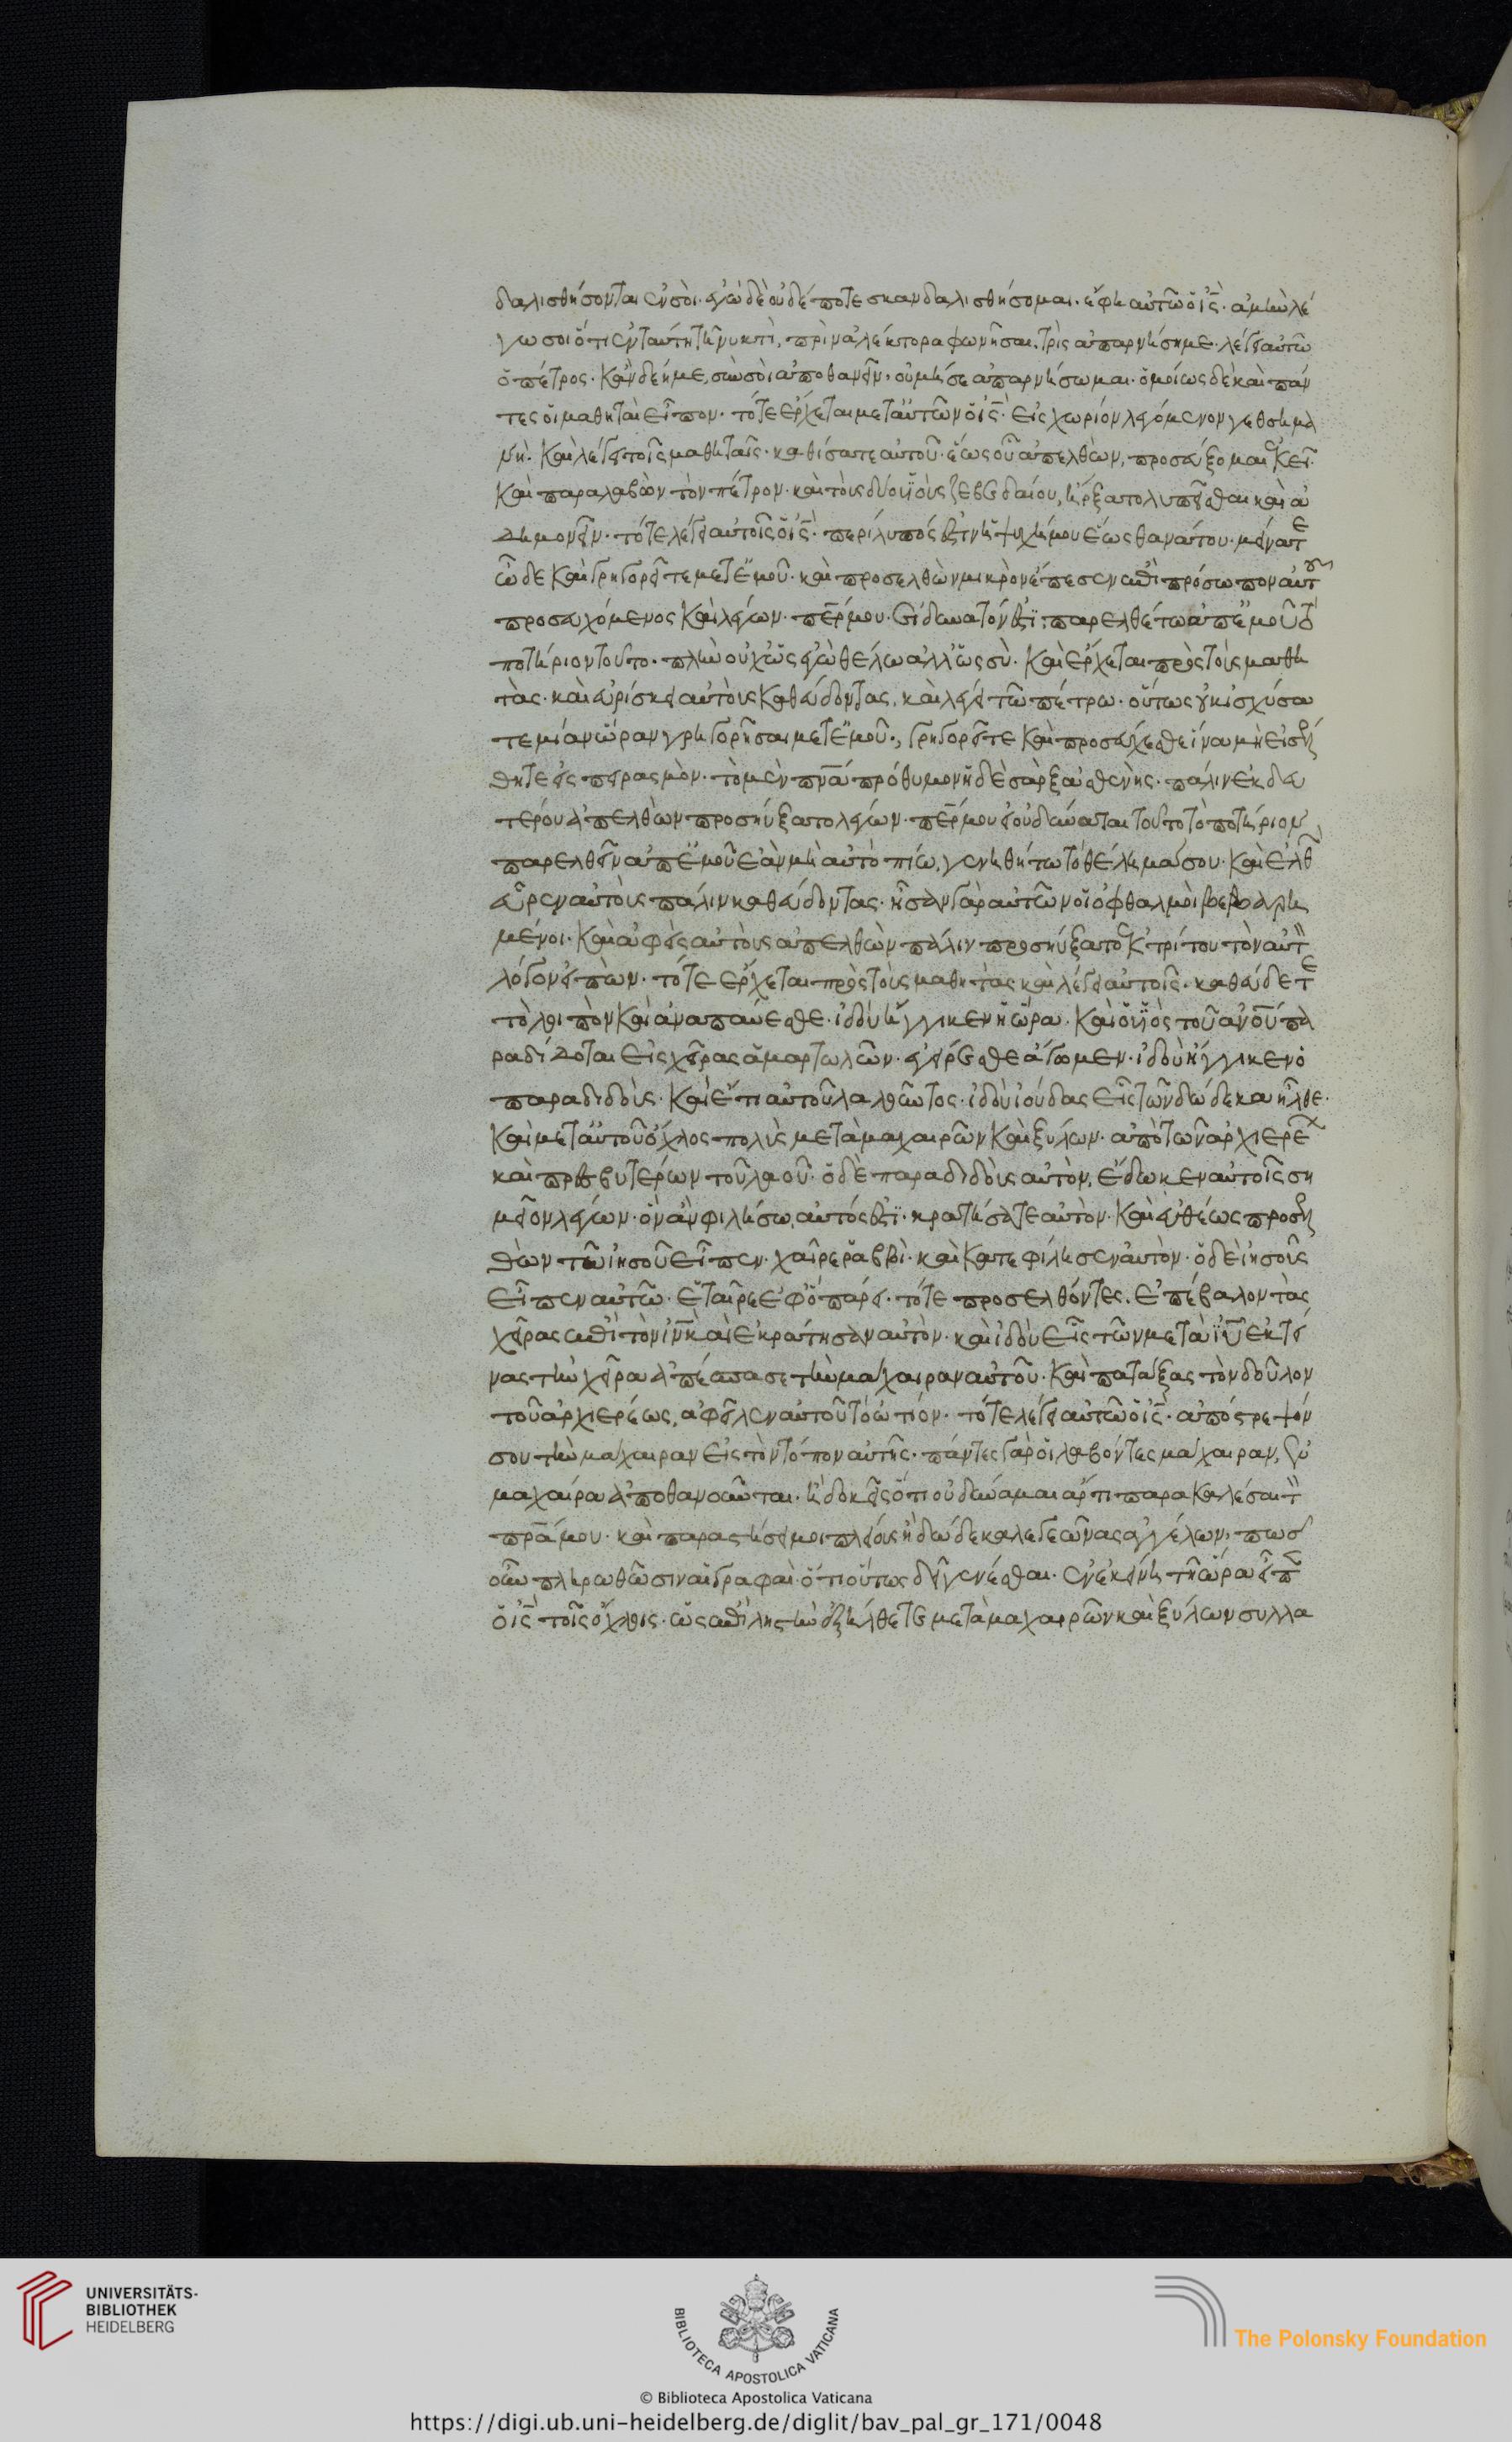 δαλισθήσονται ἐν σοὶ· ἐγὼ δὲ οὐδέποτε σκανδαλισθήσομαι· ἔφη αὐτῶ ὁ ἰς̅· ἀμὴν λέ
γω σοι ὅτι ἐν ταύτη τῆ νυκτὶ, πρὶν ἀλέκτορα φωνῆσαι, τρὶς ἀπαρνήση με· λέγει αὐτῶ
ὁ πέτρος· κἂν δέη με, σὺν σοὶ ἀποθανεῖν, οὐ μή σε ἀπαρνήσωμαι· ὁμοίως δὲ καὶ πάν
τες οἱ μαθηταὶ εἶπον· τότε ἔρχεται μετ' αὐτῶν ὁ ἰς̅· εἰς χωρίον λεγόμενον γεθσημα
νή· καὶ λέγει τοῖς μαθηταῖς· καθίσατε αὐτοῦ· ἕως οὗ ἀπελθὼν, προσεύξομαι ἐκεῖ·
καὶ παραλαβὼν τὸν πέτρον· καὶ τοὺς δύο υἱοὺς ζεβεδαίου, ἤρξατο λυπεῖσθαι καὶ ἀ
δημονεῖν· τότε λέγει αὐτοῖς ὁ ἰς̅· περίλυπός ἐστιν ἡ ψυχή μου ἕως θανάτου· μείνατε
ὧδε καὶ γρηγορεῖτε μετ' ἐμοῦ· καὶ προσελθὼν μικρὸν ἔπεσεν ἐπὶ πρόσωπον αὐτοῦ
προσευχόμενος καὶ λέγων· πε̅ρ μου· εἰ δυνατόν ἐστι· παρελθέτω ἀπ' ἐμοῦ τὸ
ποτήριον τοῦτο· πλὴν οὐχ ὡς ἐγὼ θέλω ἀλλ' ὡς σὺ· καὶ ἔρχεται πρὸς τοὺς μαθη
τὰς· καὶ εὑρίσκει αὐτοὺς καθεύδοντας, καὶ λέγει τῶ πέτρω· οὕτως οὐκ ἰσχύσα
τε μίαν ὥραν γρηγορῆσαι μετ' ἐμοῦ·, γρηγορεῖτε καὶ προσεύχεσθε ἵνα μὴ εἰσέλ
θητε εἰς πειρασμὸν· τὸ μὲν πνα̅ πρόθυμον ἡ δὲ σὰρξ ἀσθενὴς· πάλιν ἐκ δευ
τέρου ἀπελθὼν προσηύξατο λέγων· πε̅ρ μου εἰ οὐ δύναται τοῦτο τὸ ποτήριον
παρελθεῖν ἀπ' ἐμοῦ ἐὰν μὴ αὐτὸ πίω, γενηθήτω τὸ θέλημά σου· καὶ ἐλθὼν
εὗρεν αὐτοὺς πάλιν καθεύδοντας· ἦσαν γὰρ αὐτῶν οἱ ὀφθαλμοὶ βεβαρη
μένοι· καὶ ἀφεὶς αὐτοὺς ἀπελθὼν πάλιν προσηύξατο ἐκ τρίτου τὸν αὐτὸν
λόγον εἰπὼν· τότε ἔρχεται πρὸς τοὺς μαθητὰς καὶ λέγει αὐτοῖς· καθεύδετε
τὸ λοιπὸν καὶ ἀναπαύεσθε· ἰδοὺ ἤγγικεν ἡ ὥρα· καὶ ὁ υἱὸς τοῦ ανο̅υ πα
ραδίδοται εἰς χεῖρας ἁμαρτωλῶν· ἐγείρεσθε ἄγωμεν· ἰδοὺ ἤγγικεν ὁ
παραδιδοὺς· καὶ ἔτι αὐτοῦ λαλοῦντος· ἰδοὺ ἰούδας εἷς τῶν δώδεκα ἦλθε·
καὶ μετ' αὐτοῦ ὄχλος πολὺς μετὰ μαχαιρῶν καὶ ξύλων· ἀπὸ τῶν ἀρχιερέων
καὶ πρεσβυτέρων τοῦ λαοῦ· ὁ δὲ παραδιδοὺς αὐτὸν, ἔδωκεν αὐτοῖς ση
μεῖον λέγων· ὃν ἂν φιλήσω, αὐτός ἐστι· κρατήσατε αὐτὸν· καὶ εὐθέως προσελ
θὼν τῶ ἰησοῦ εἶπεν· χαῖρε ῥαββὶ· καὶ κατεφίλησεν αὐτὸν· ὁ δὲ ἰησοῦς
εἶπεν αὐτῶ· ἑταῖρε ἐφ' ὃ πάρει· τότε προσελθόντες, ἐπέβαλον τὰς
χεῖρας ἐπὶ τὸν ἰν̅ καὶ ἐκράτησαν αὐτὸν· καὶ ἰδοὺ εἷς τῶν μετὰ ἰυ̅ ἐκτεί
νας τὴν χεῖρα ἀπέσπασε τὴν μάχαιραν αὐτοῦ· καὶ πατάξας τὸν δοῦλον
τοῦ ἀρχιερέως, ἀφεῖλεν αὐτοῦ τὸ ὠτίον· τότε λέγει αὐτῶ ὁ ἰς̅· ἀπόστρεψόν
σου τὴν μάχαιραν εἰς τὸν τόπον αὐτῆς· πάντες γὰρ οἱ λαβόντες μάχαιραν, ἐν
μαχαίρα ἀποθανοῦνται· ἢ δοκεῖς ὅτι οὐ δύναμαι ἄρτι παρακαλέσαι τὸν
πρα̅ μου· καὶ παραστήσει μοι πλείους ἢ δώδεκα λεγεῶνας ἀγγέλων, πῶς
οὖν πληρωθῶσιν αἱ γραφαὶ· ὅτι οὕτως δεῖ γενέσθαι· ἐν ἐκείνη τῆ ὥρα εἶπεν
ὁ ἰς̅ τοῖς ὄχλοις· ὡς ἐπὶ ληστὴν ἐξήλθετε μετὰ μαχαιρῶν καὶ ξύλων συλλα
UNIVERSITÄTS-
BIBLIOTHEK
HEIDELBERG
BIBLIOTECA APOSTOLICA VATICANA
The Polonsky Foundation
© Biblioteca Apostolica Vaticana
https://digi.ub.uni-heidelberg.de/diglit/bav_pal_gr_171/0048